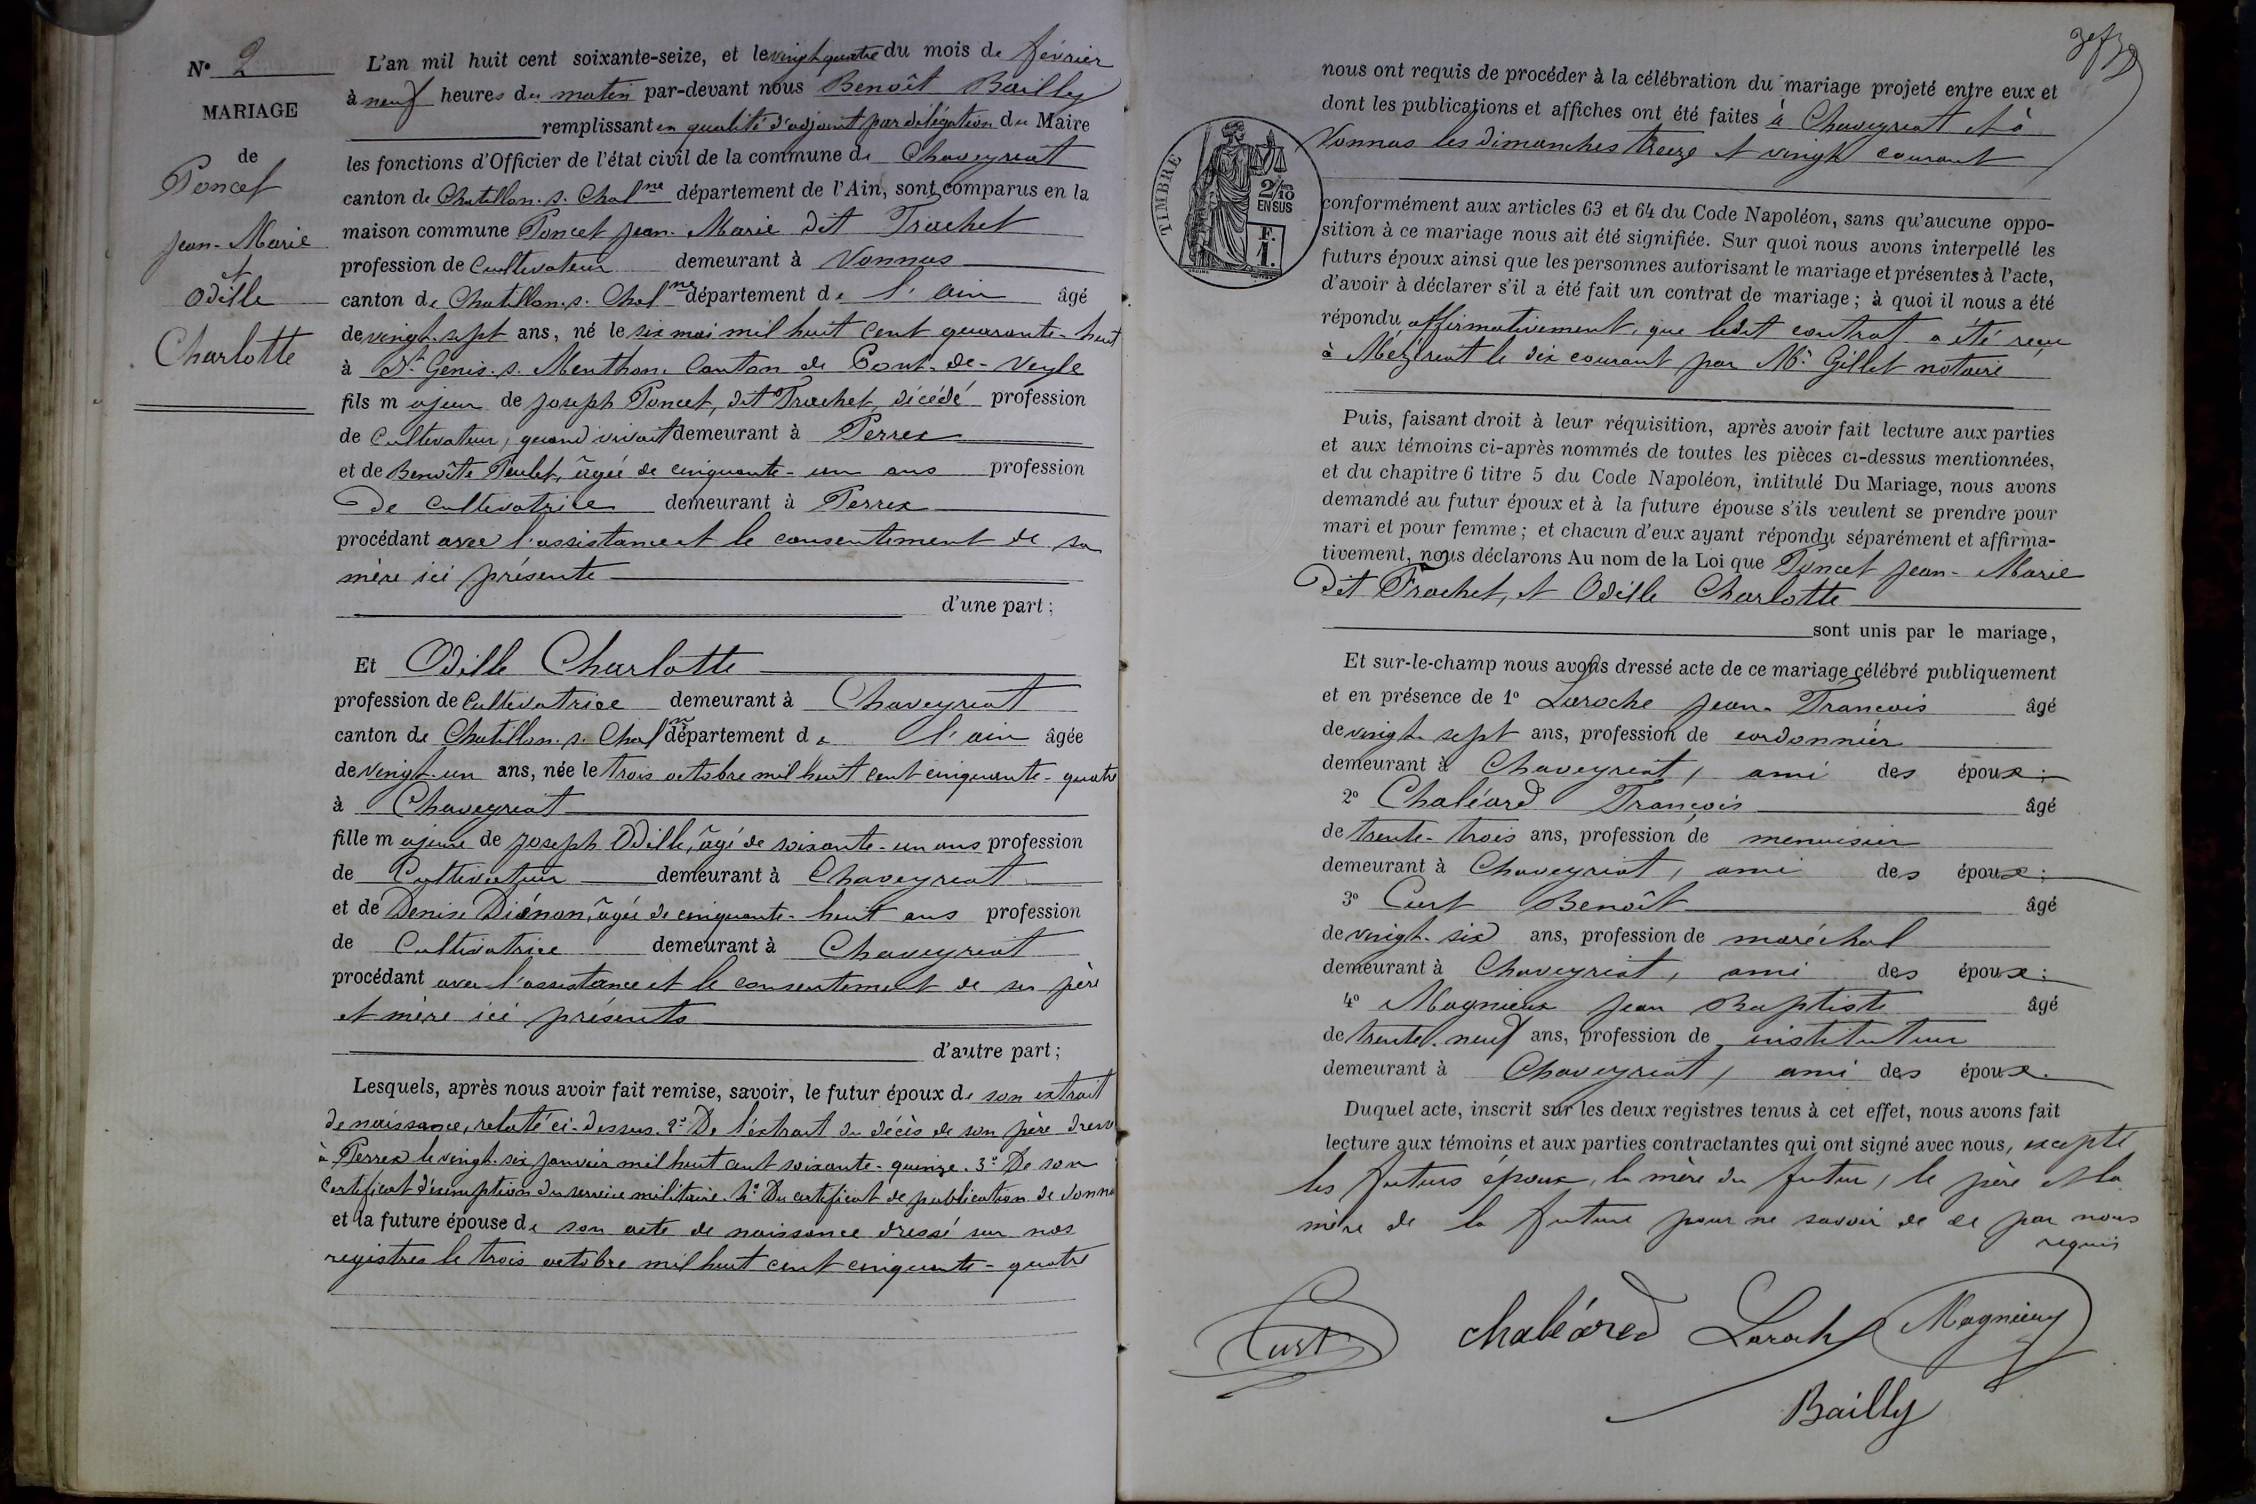 N° 2
MARIAGE
de
Poncet
Jean-Marie
et
Odille
Charlotte
L'an mil huit cent soixante-seize, et le vingt quatre du mois de février
à neuf heures du matin par-devant nous Benoît Bailly
remplissant en qualité d'adjoint par délégation du Maire
les fonctions d'Officier de l'état civil de la commune de Chaveyriat
canton de Chatillon. s. Chal.ne département de l'Ain, sont comparus en la
maison commune Poncet Jean-Marie dit Frachet
profession de Cultivateur demeurant à Vonnas
canton de Chatillon. s. Chal.ne département de l'ain âgé
de vingt-sept ans, né le six mai mil huit cent quarante-huit
à St Genis. s. Menthon. Canton de Pont-de-Veyle
fils majeur de Joseph Poncet, dit Frachet, décédé profession
de Cultivateur, quand vivait demeurant à Perrex
et de Benoîte Poulet, âgée de cinquante-un ans profession
de Cultivatrice demeurant à Perrex
procédant avec l'assistance et le consentement de sa
mère ici présente
d'une part;
Et Odille Charlotte
profession de Cultivatrice demeurant à Chaveyriat
canton de Chatillon. s. Chal.ne département de l'ain âgée
de vingt-un ans, née le trois octobre mil huit cent cinquante-quatre
à Chaveyriat
fille majeure de Joseph Odille, âgé de soixante-un ans profession
de Cultivateur demeurant à Chaveyriat
et de Denise Diénon, âgée de cinquante-huit ans profession
de Cultivatrice demeurant à Chaveyriat
procédant avec l'assistance et le consentement de ses père
et mère ici présents
d'autre part;
Lesquels, après nous avoir fait remise, savoir, le futur époux de son extrait
de naissance, relaté ci-dessus. 2° De l'extrait du décès de son père dressé
à Perrex le vingt-six janvier mil huit cent soixante-quinze. 3° De son
Certificat d'exemption du service militaire. 4° Du certificat de publication de Vonnas
et la future épouse de son acte de naissance dressé sur nos
registres le trois octobre mil huit cent cinquante-quatre
nous ont requis de procéder à la célébration du mariage projeté entre eux et
dont les publications et affiches ont été faites à Chaveyriat et à
Vonnas les dimanches treize et vingt courant
TIMBRE
2/10
EN SUS
F.
1.
conformément aux articles 63 et 64 du Code Napoléon, sans qu'aucune oppo-
sition à ce mariage nous ait été signifiée. Sur quoi nous avons interpellé les
futurs époux ainsi que les personnes autorisant le mariage et présentes à l'acte,
d'avoir à déclarer s'il a été fait un contrat de mariage; à quoi il nous a été
répondu affirmativement, que ledit contrat a été reçu
à Mezériat le dix courant par Me Gillet notaire
Puis, faisant droit à leur réquisition, après avoir fait lecture aux parties
et aux témoins ci-après nommés de toutes les pièces ci-dessus mentionnées,
et du chapitre 6 titre 5 du Code Napoléon, intitulé Du Mariage, nous avons
demandé au futur époux et à la future épouse s'ils veulent se prendre pour
mari et pour femme; et chacun d'eux ayant répondu séparément et affirma-
tivement, nous déclarons Au nom de la Loi que Poncet Jean-Marie
dit Frachet, et Odille Charlotte
sont unis par le mariage,
Et sur-le-champ nous avons dressé acte de ce mariage célébré publiquement
et en présence de 1° Laroche Jean-François âgé
de vingt-sept ans, profession de cordonnier
demeurant à Chaveyriat, ami des époux;
2° Chaléard François âgé
de trente-trois ans, profession de menuisier
demeurant à Chaveyriat, ami des époux;
3° Curt Benoît âgé
de vingt-six ans, profession de maréchal
demeurant à Chaveyriat, ami des époux;
4° Magnieux Jean Baptiste âgé
de trente-neuf ans, profession de instituteur
demeurant à Chaveyriat, ami des époux.
Duquel acte, inscrit sur les deux registres tenus à cet effet, nous avons fait
lecture aux témoins et aux parties contractantes qui ont signé avec nous, excepté
les futurs époux, la mère du futur, le père et la
mère de la future pour ne savoir de ce par nous
requis
Curt chaléard Laroch Magnieux
Bailly